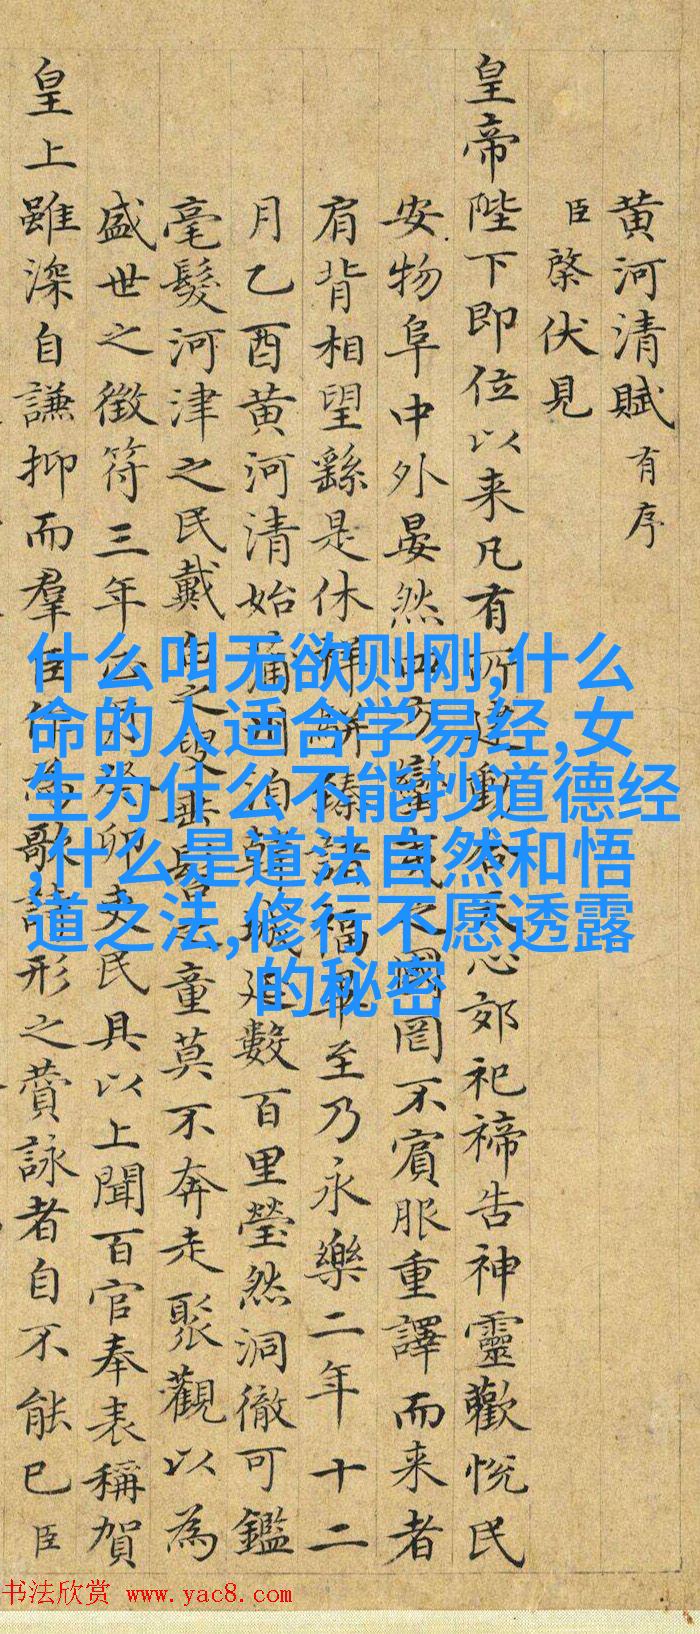 黄河清賦有序
臣棨伏見
皇帝陛下即位以来凡有所建動合天心郊祀禘告神靈歡悦民
安物阜中外晏然四蠻夷之國罔不賓服重譯而来者
肩背相望繇是休祥駢臻諸福畢至乃永樂二年十二
月乙酉黄河清始蒲州洎韓城延數百里瑩然洞徹可鑑
毫髮河津之民戴白之叟垂髫之童莫不奔走聚觀以為
盛世之徵符三年正月癸卯吏民具以上聞百官奉表稱賀
皇上雖深自謙抑而羣臣作為歌詩形之賛詠者自不能已臣
什么叫无欲则刚,什么
命的人适合学易经,女
生为什么不能抄道德经
,什么是道法自然和悟
道之法,修行不愿透露
的秘密
书法欣赏 www.yac8.com